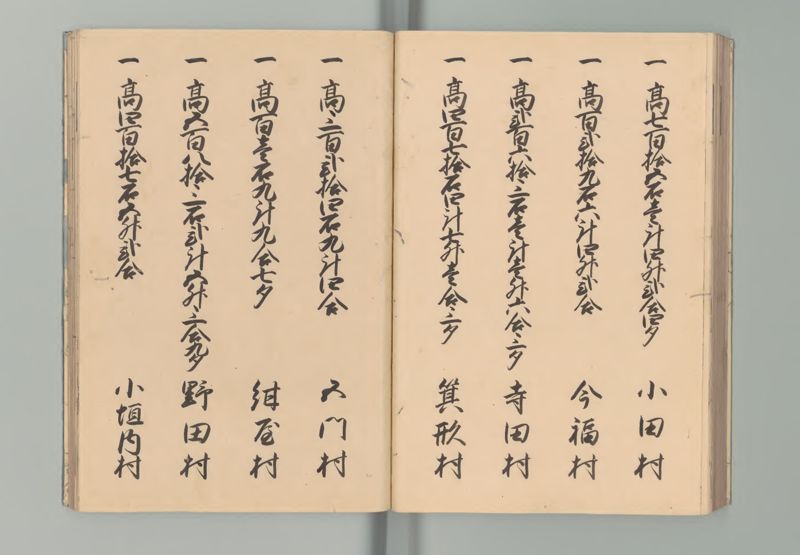 一 高七百拾五石壱斗四升弐合四夕 小田村
一 高百弐拾九石六斗四升弐合 今福村
一 高弐百六拾三石壱斗壱升六合三夕 寺田村
一 高四百七拾石四斗七升壱合三夕 箕形村
一 高三百弐拾四石九斗四合 五門村
一 高百壱石九斗九合七夕 紺屋村
一 高五百八拾三石弐斗六升三合九夕 野田村
一 高四百拾七石五升弐合 小垣内村